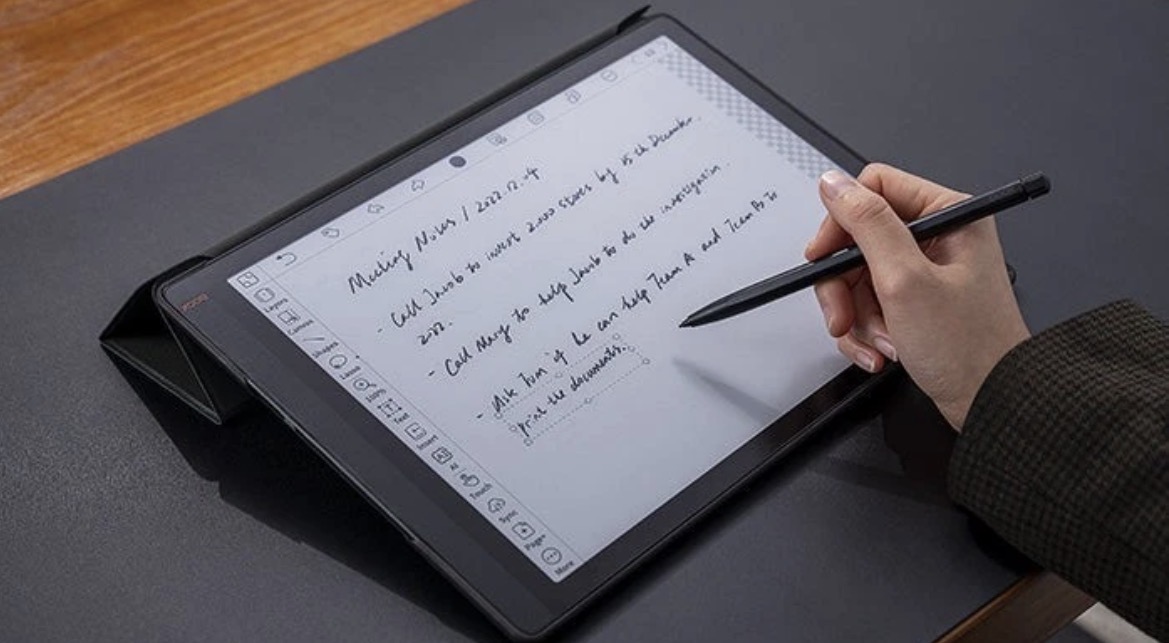 Meeting Notes / 2022.12.04
- Call Jacob to invest 2,000 stores by 15th December.
2022.
- Call Mary to help Jacob to do the investigation.
- Ask Tom if he can help Team A and Team B to
print the documents.
Layers
Canvas
Shapes
Lasso
100%
Text
Insert
AI
Touch
Sync
Page+
More
BOOX